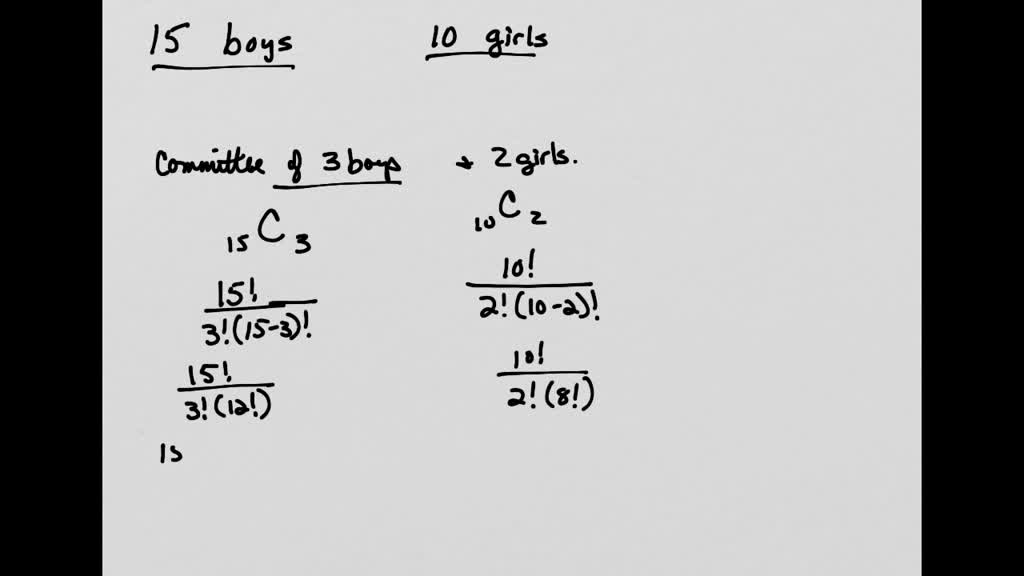 15 boys 10 girls
Committee of 3 boys + 2 girls.
15C3 10C2
15! 10!
3!(15-3)! 2!(10-2)!
15! 10!
3!(12!) 2!(8!)
15